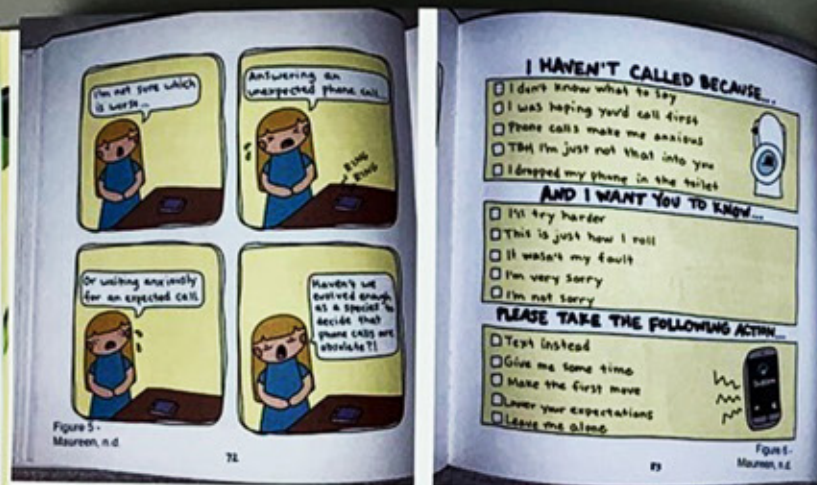 I'm not sure which
is worse...
Answering an
unexpected phone call...
RING
RING
Or waiting anxiously
for an expected call
Haven't we
evolved enough
as a species to
decide that
phone calls are
obsolete?!
Figure 5 -
Maureen, n.d.
72
I HAVEN'T CALLED BECAUSE...
I don't know what to say
I was hoping you'd call first
Phone calls make me anxious
TBH I'm just not that into you
I dropped my phone in the toilet
AND I WANT YOU TO KNOW...
I'll try harder
This is just how I roll
It wasn't my fault
I'm very sorry
I'm not sorry
PLEASE TAKE THE FOLLOWING ACTION...
Text instead
Give me some time
Make the first move
Lower your expectations
Leave me alone
Figure 6 -
Maureen, n.d.